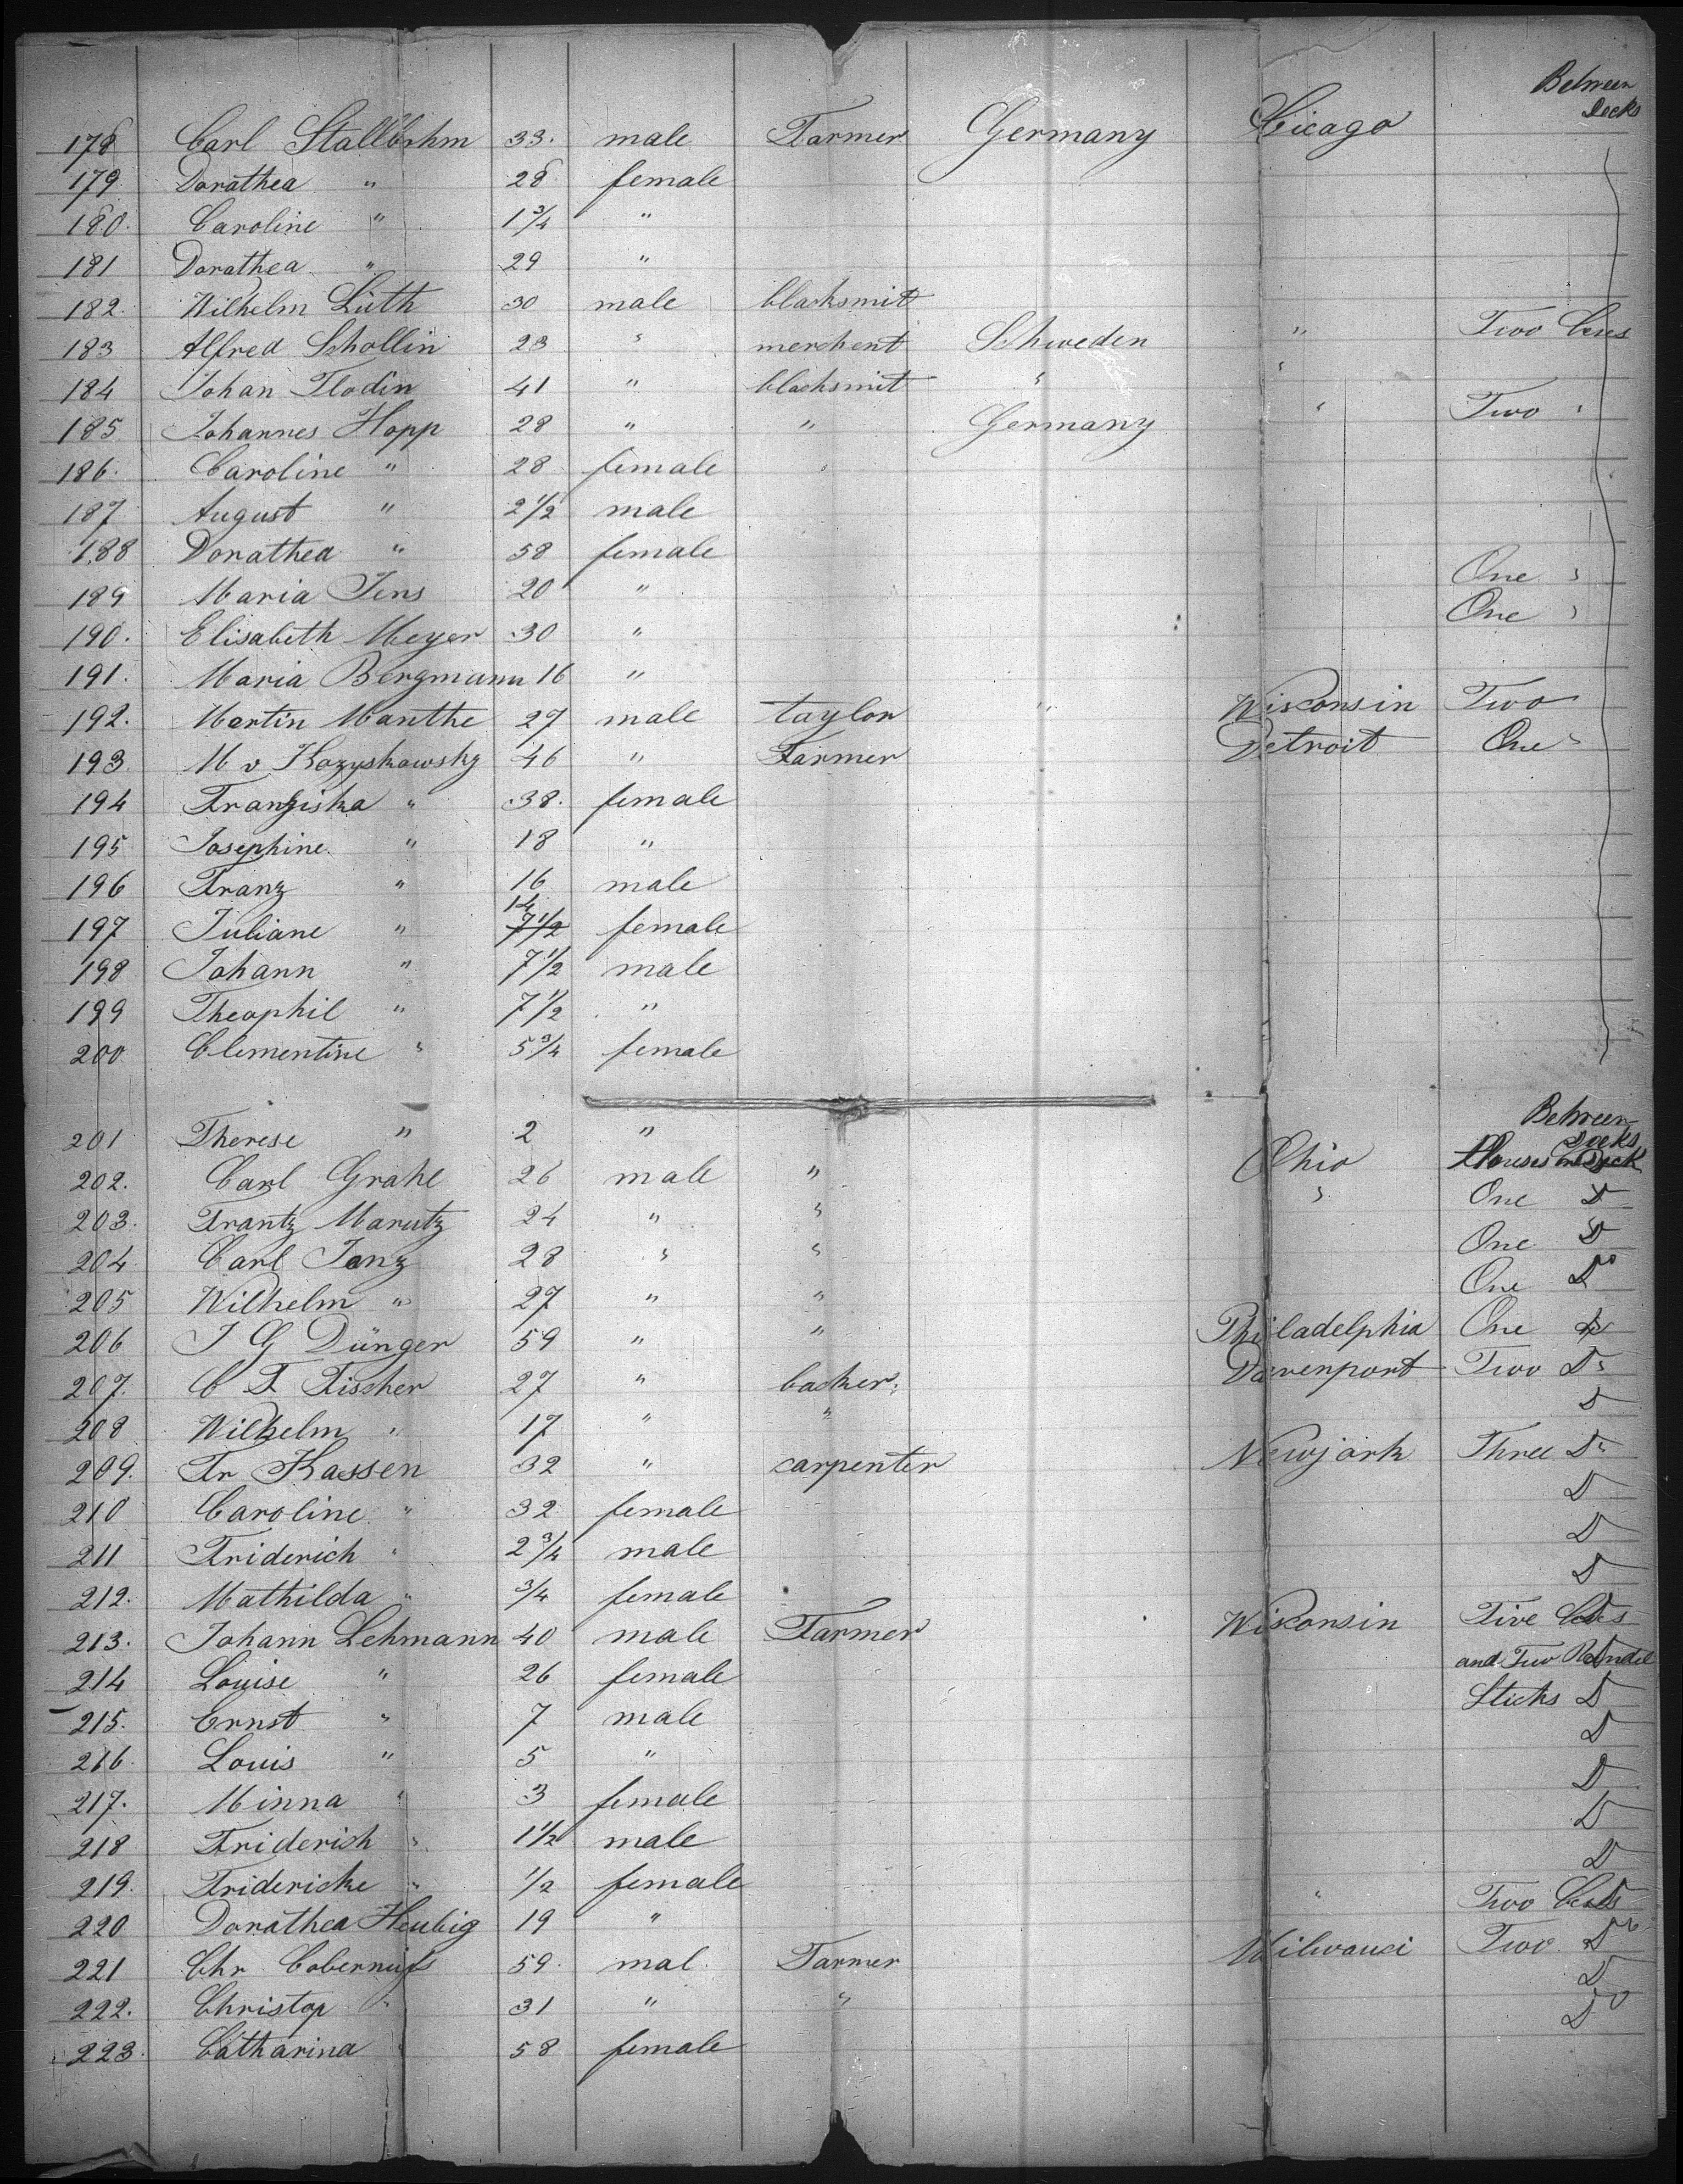 Between
Decks
178 Carl Stallbohm 33. male Farmer Germany Cicago
179 Dorathea " 28 female
180. Caroline " 1 3/4 "
181 Dorathea " 29 "
182. Wilhelm Lüth 30 male blacksmit
183 Alfred Schollin 23 " merchent Schweden " Two
184 Johan Flodin 41 " blacksmit " "
185 Johannes Hopp 28 " " Germany " Two "
186. Caroline " 28 female
187 August " 2 1/2 male
188 Dorathea " 58 female
189 Maria Jens 20 " One "
190. Elisabeth Meyer 30 " One "
191. Maria Bergmann 16 "
192. Martin Manthe 27 male taylor " Wisconsin Two
193. M v Kozyskowsky 46 " Farmer Detroit One "
194 Franziska " 38. female
195 Josephine " 18 "
196 Franz " 16 male
14
197 Juliane " 7 1/2 female
198 Johann " 7 1/2 male
199 Theophil " 7 1/2 "
200 Clementine " 5 3/4 female
Between
Decks
201 Therese " 2 "
202. Carl Grahl 26 male " Ohio
203. Frantz Marutz 24 " " " One D
204 Carl Janz 28 " " One D
205 Wilhelm " 27 " " One Do
206 J G Dünger 59 " " Philadelphia One Do
207. C F Fischer 27 " backer. Davenport Two Do
208 Wilhelm " 17 " " D
209. Fr Kassen 32 " carpenter Newjork Three Do
210 Caroline " 32 female D
211 Friderich " 2 3/4 male D
212. Mathilda " 3/4 female D
213. Johann Lehmann 40 male Farmer Wisconsin Five
214 Louise " 26 female and Two
215. Ernst " 7 male Sticks D
216 Louis " 5 " D
217. Minna " 3 female D
218 Friderich " 1 1/2 male D
219. Fridericke " 1/2 female D
220 Dorathea Heubig 19 " " Two
221 Chr Cobernufs 59. mal. Farmer Milwauci Two Do
222. Christop " 31 " " D
223. Catharina " 58 female Do